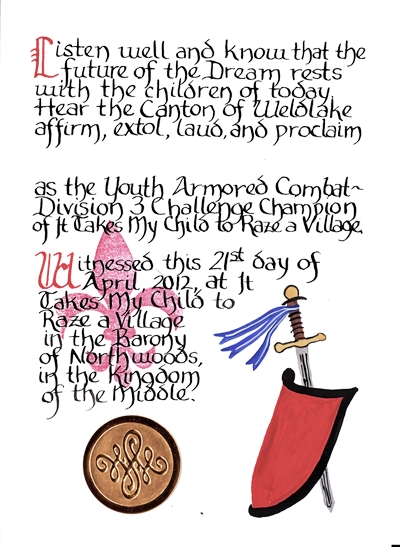 Listen well and know that the
future of the Dream rests
with the children of today.
Hear the Canton of Weldlake
affirm, extol, laud, and proclaim
as the Youth Armored Combat~
Division 3 Challenge Champion
of It Takes My Child to Raze a Village.
Witnessed this 21st day of
April, 2012, at It
Takes My Child to
Raze a Village
in the Barony
of Northwoods,
in the Kingdom
of the Middle.